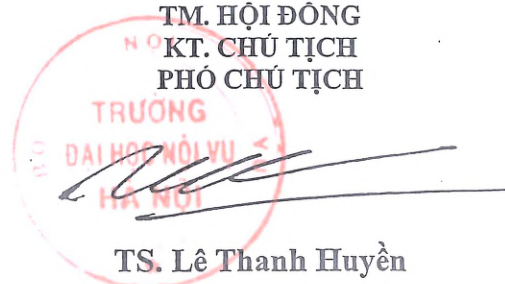 TM. HỘI ĐỒNG
KT. CHỦ TỊCH
PHÓ CHỦ TỊCH
TRƯỜNG
ĐẠI HỌC NỘI VỤ
HÀ NỘI
TS. Lê Thanh Huyền